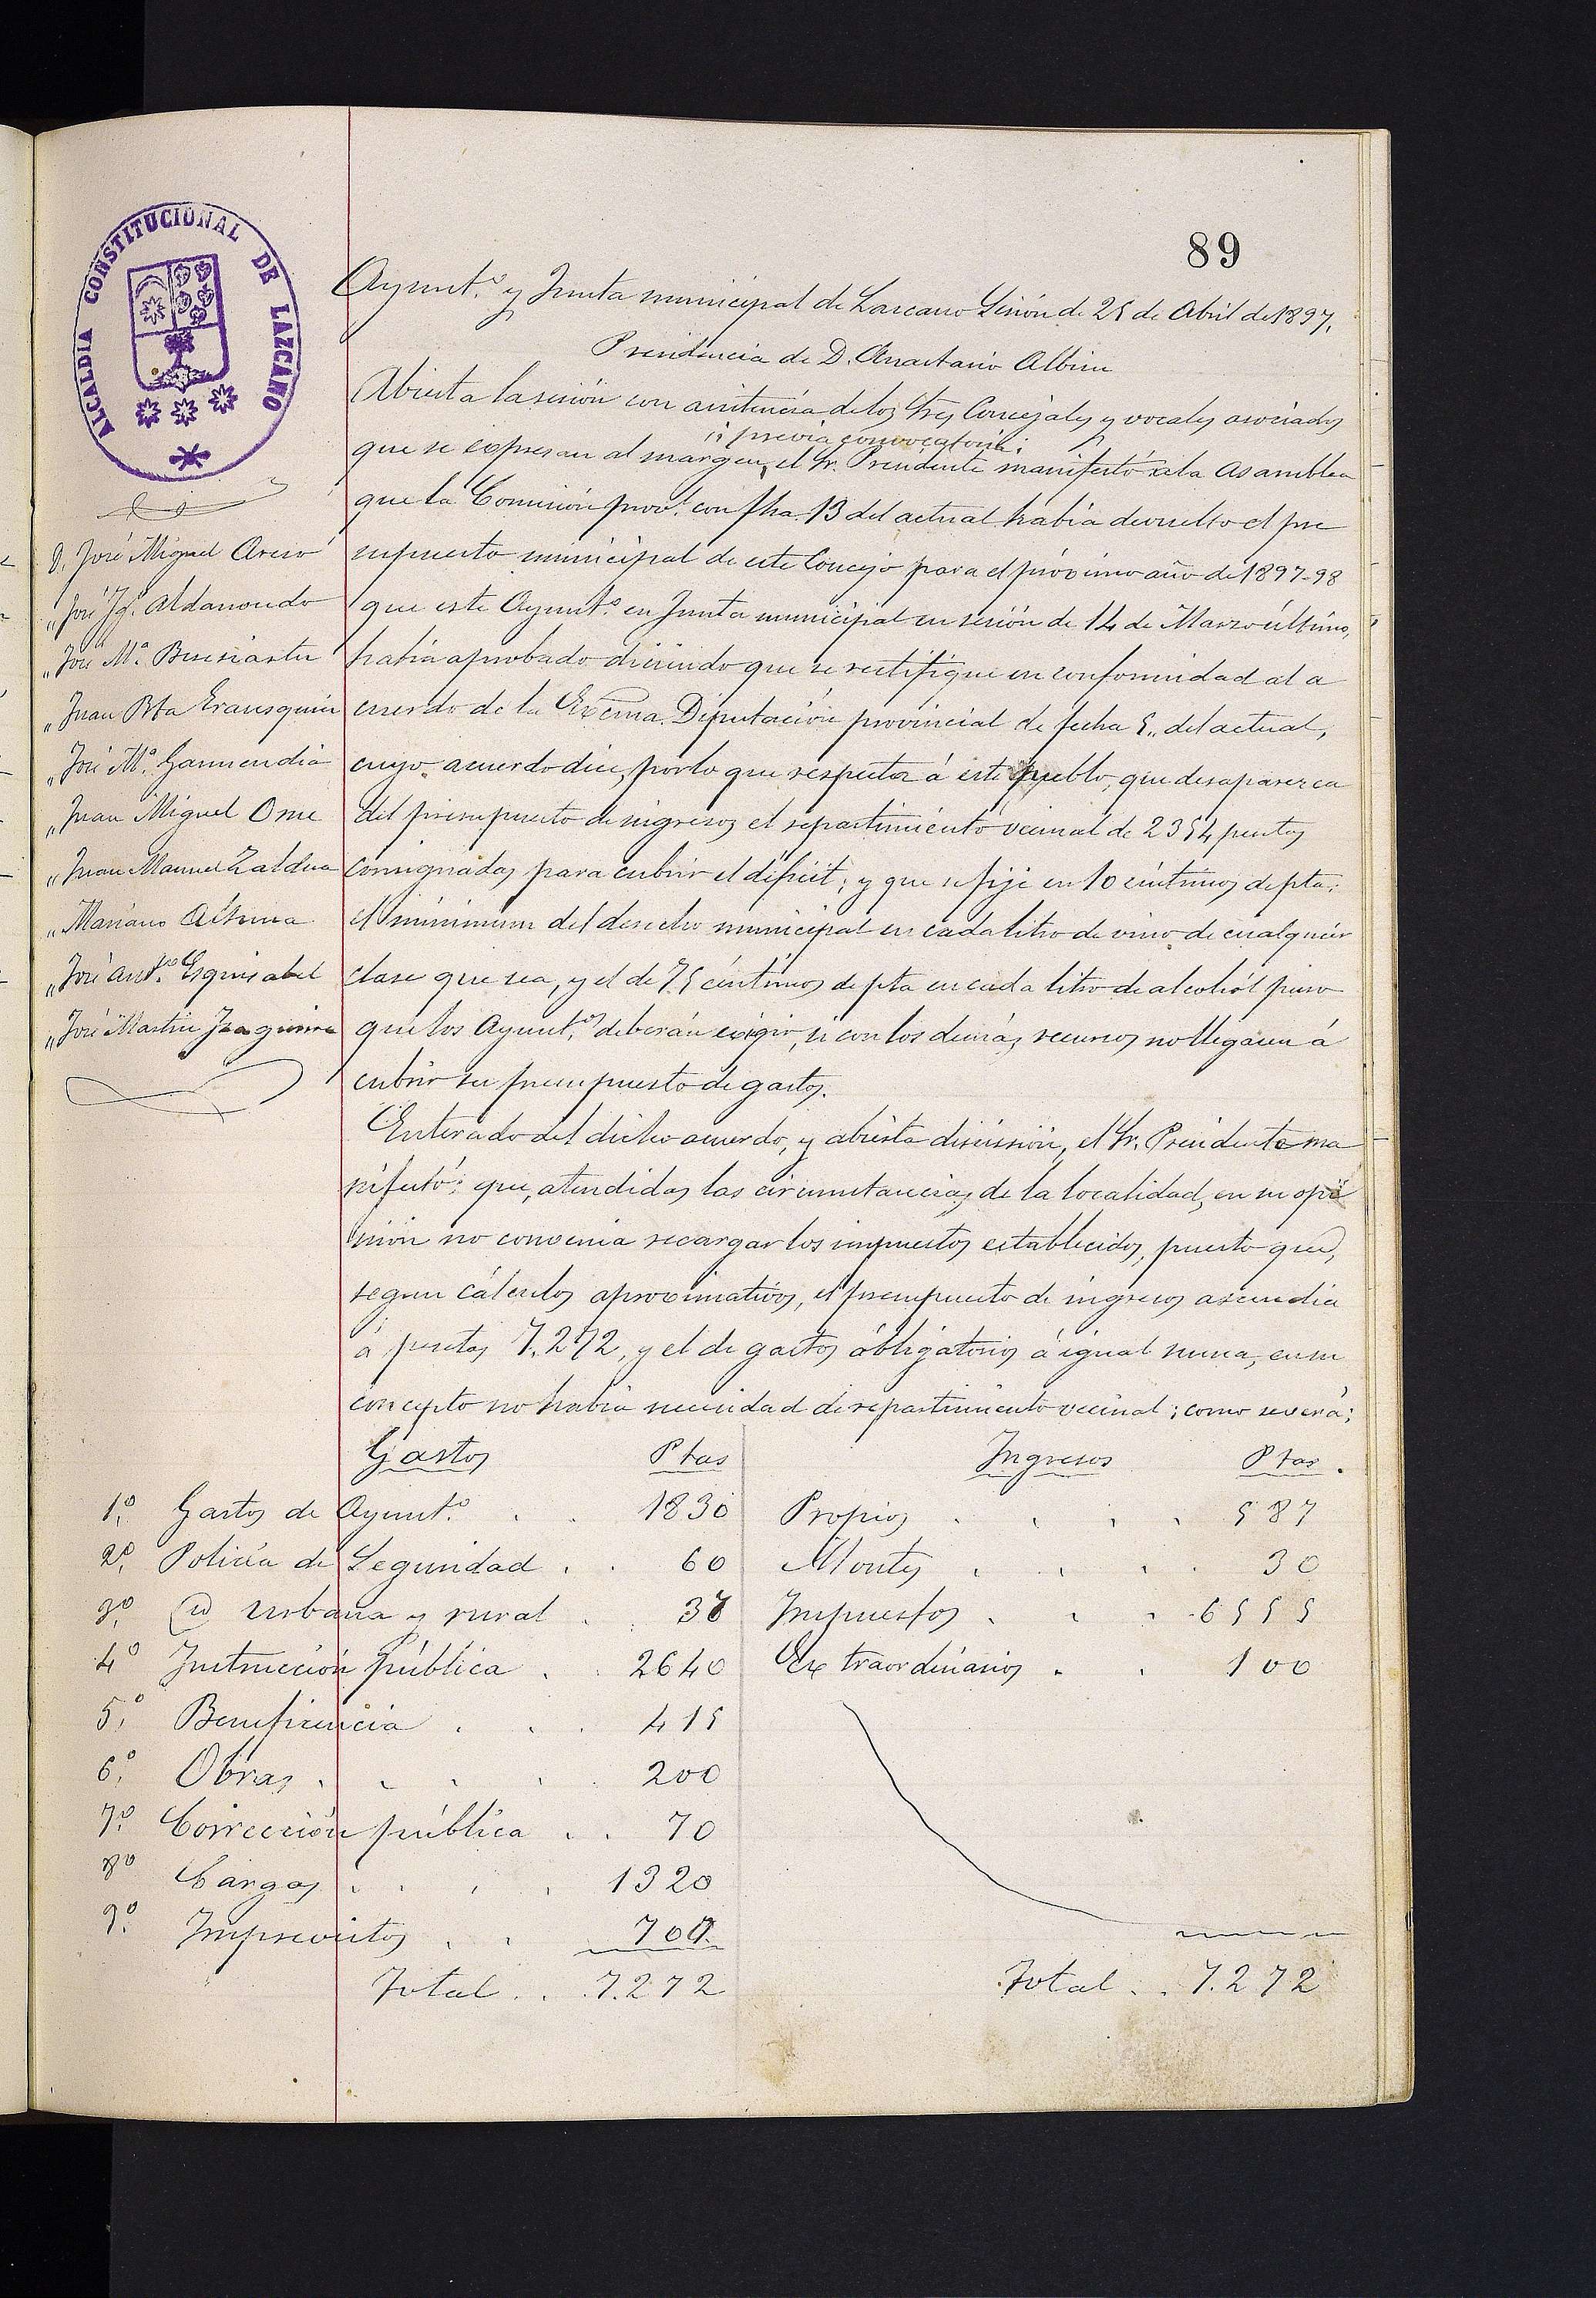 89
ALCALDIA CONSTITUCIONAL DE LAZCANO
Ayunt.º y Junta municipal de Lazcano Sesión de 25 de Abril de 1897.
Presidencia de D. Anastasio Albisu
D. José Miguel
" José Ig.º Aldanondo
" José M.ª
" Juan Bta Erausquin
" José M.ª Garmendia
" Juan Miguel
" Juan Manuel Zaldua
" Mariano Aëstuia
" José Ant.º Esquisabel
" José Martin Izaguirre
Abierta la sesión con asistencia de los Sres Concejales y vocales asociados
" previa convocatoria;
que se expresan al margen, el Sr. Presidente manifestó á la Asamblea
que la Comisión prov.l con fha. 13 del actual había devuelto el pre
supuesto municipal de este Concejo para el próximo año de 1897-98
que este Ayunt.º en Junta municipal en sesión de 14 de Marzo último,
había aprobado diciendo que se rectifique en conformidad al a
cuerdo de la Excma. Diputación provincial de fecha 5,, del actual,
cuyo acuerdo dice, por lo que respecta á este pueblo, que desaparezca
del presupuesto de ingresos el repartimiento vecinal de 2354 pesetas
consignadas para cubrir el déficit; y que se fije en 10 céntimos de pta:
el mínimum del derecho municipal en cada litro de vino de cualquier
clase que sea, y el de 75 céntimos de pta en cada litro de alcohól puro
que los Ayunt.os deberán exigir, si con los demás recursos no llegasen á
cubrir su presupuesto de gastos.
Enterado del dicho acuerdo, y abierta discusión, el Sr. Presidente ma
nifestó: que, atendidas las circunstancias de la localidad, en su opi
nión no convenia recargar los impuestos establecidos, puesto que,
segun cálculos aproximativos, el presupuesto de ingresos ascendia
á pesetas 7.272, y el de gastos obligatorios á igual suma, en su
concepto no habia necesidad de repartimiento vecinal; como se verá:
Gastos Ptas Ingresos Ptas.
1.º Gastos de Ayunt.º . . 1830 Propios . . . . 587
2.º Policía de Seguridad . . 60 Montes . . . . 30
3.º Id urbana y rural . . 37 Impuestos . . . 6555
4.º Instrucción pública . . 2640 Extraordinarios . . 100
5.º Beneficencia . . . 415
6.º Obras . . . . . 200
7.º Corrección pública . . 70
8.º Cargas . . . . 1320
9.º Imprevistos . . 700
Total . . 7.272 Total . . 7.272